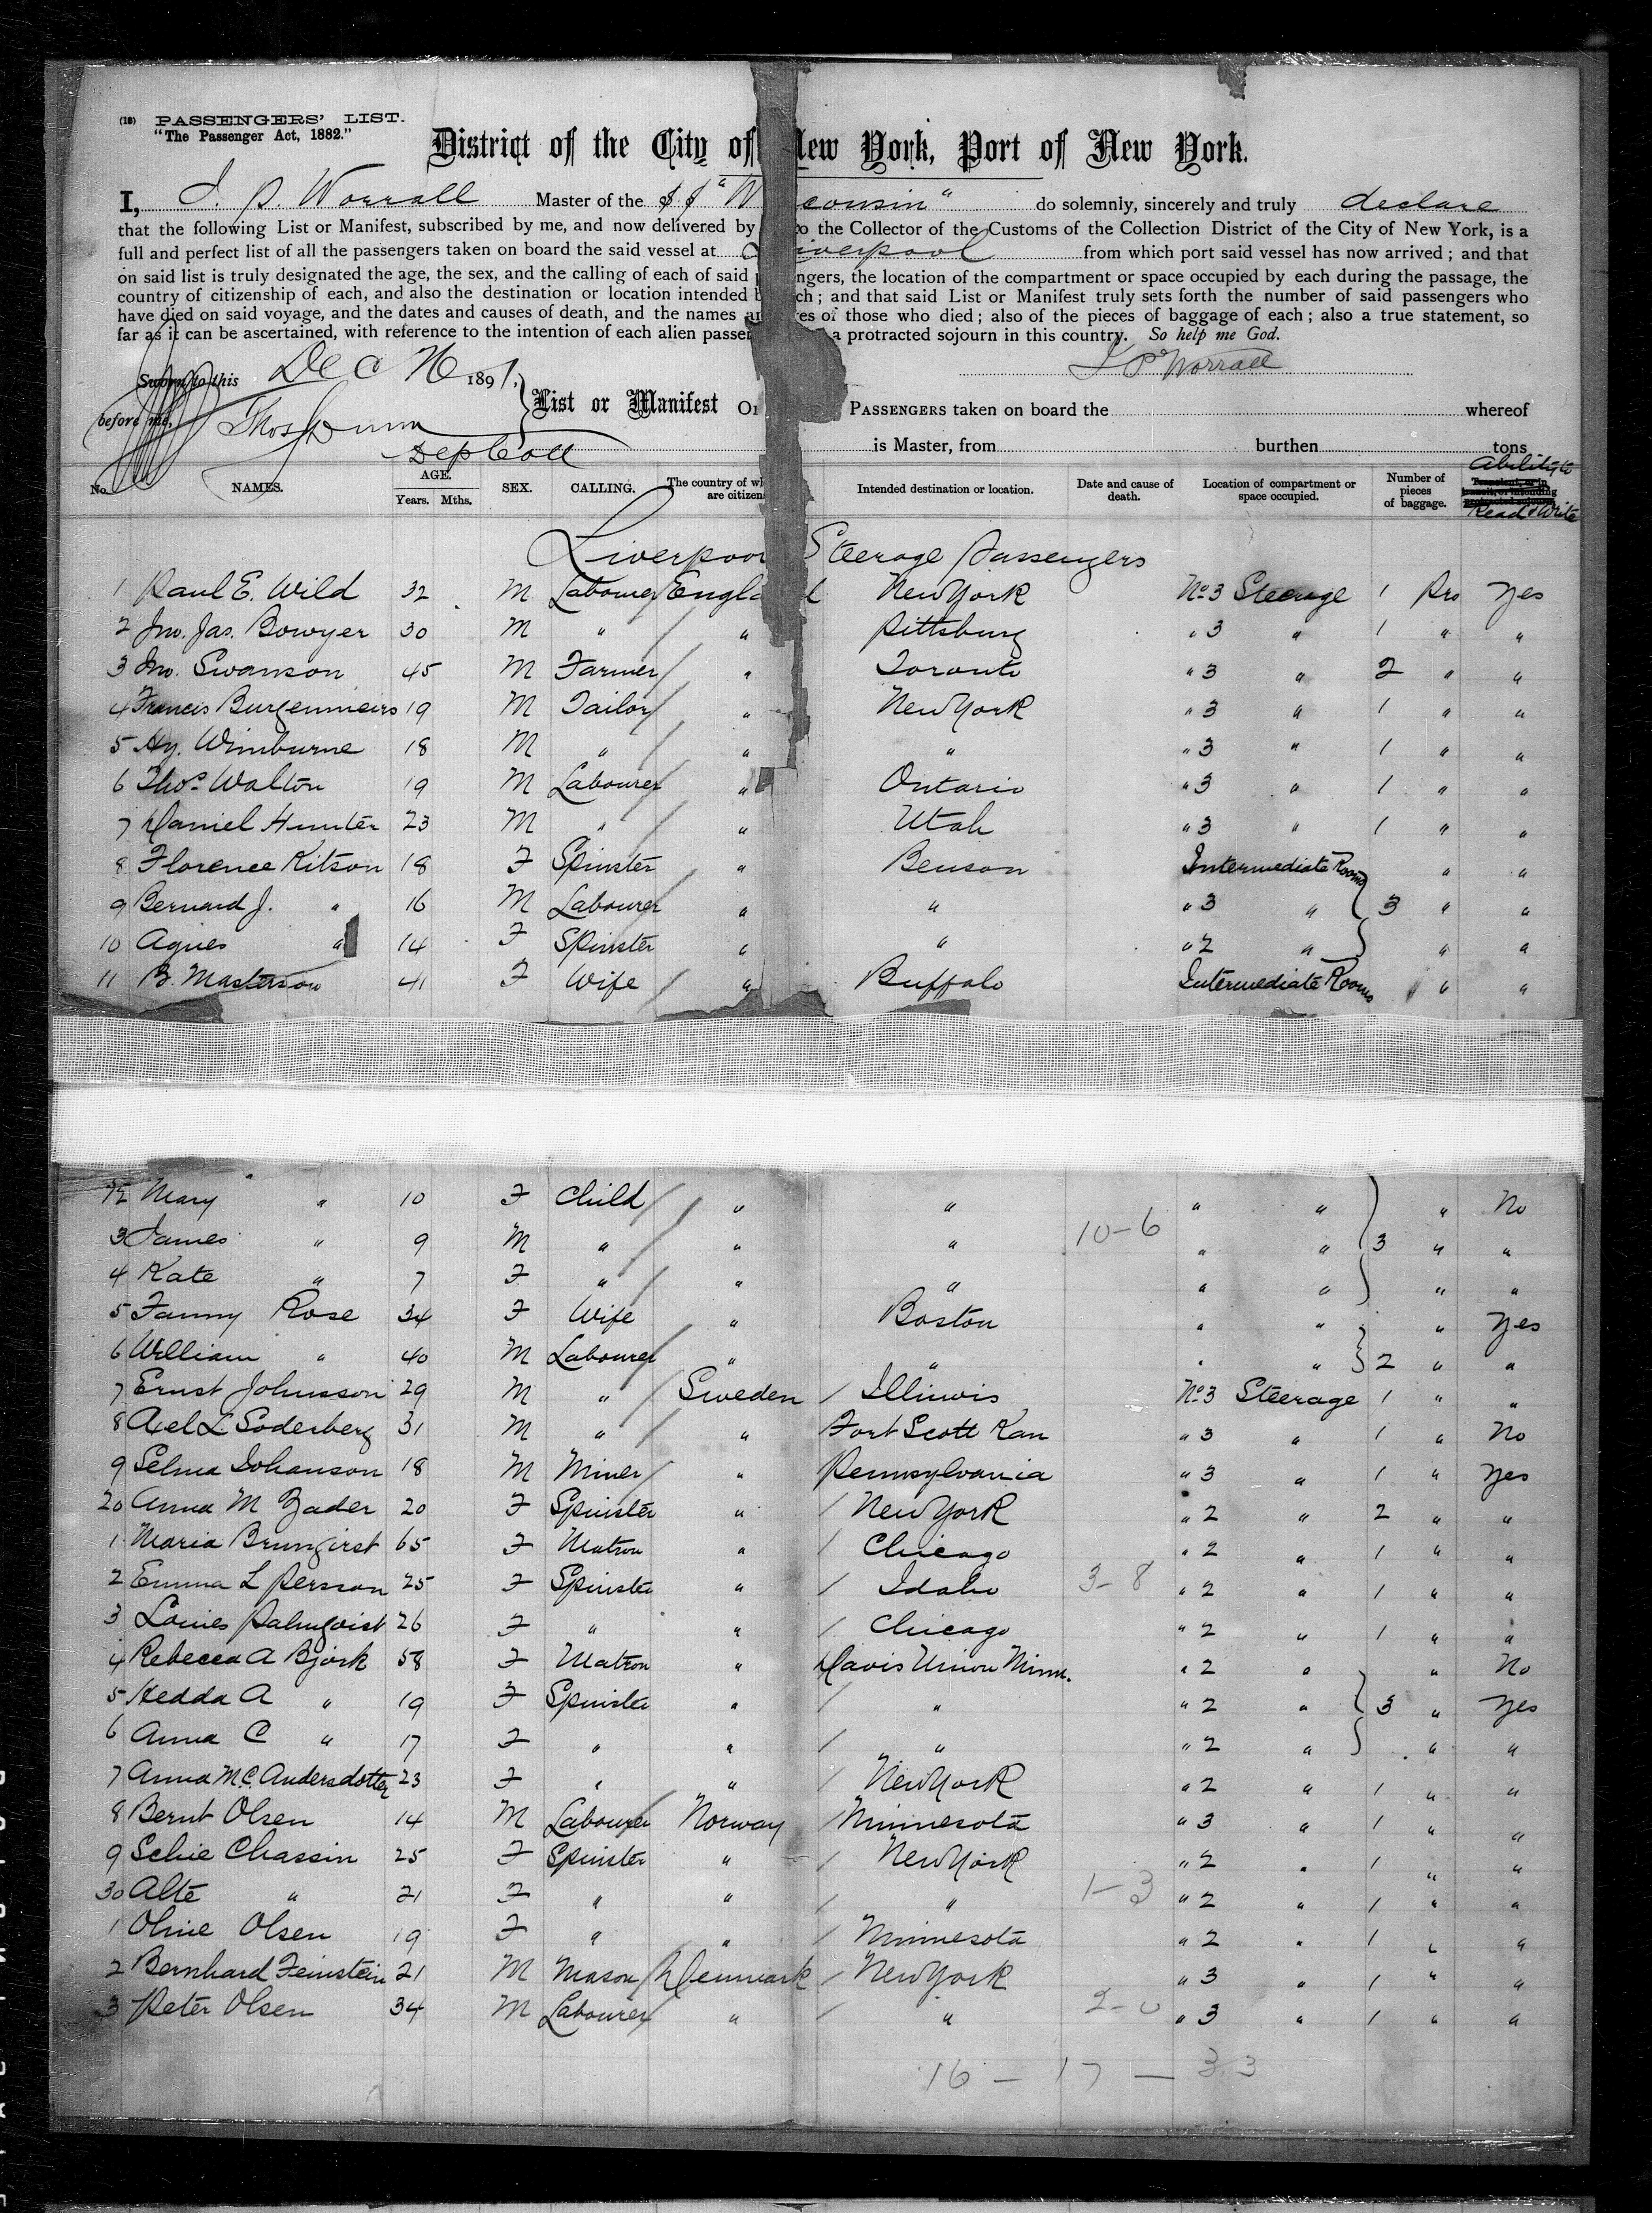 (18) PASSENGERS' LIST.
"The Passenger Act, 1882."
District of the City of New York, Port of New York.
I, J. P. Worrall Master of the SS "W consin" do solemnly, sincerely and truly declare
that the following List or Manifest, subscribed by me, and now delivered by o the Collector of the Customs of the Collection District of the City of New York, is a
full and perfect list of all the passengers taken on board the said vessel at Liverpool from which port said vessel has now arrived; and that
on said list is truly designated the age, the sex, and the calling of each of said ngers, the location of the compartment or space occupied by each during the passage, the
country of citizenship of each, and also the destination or location intended b ch; and that said List or Manifest truly sets forth the number of said passengers who
have died on said voyage, and the dates and causes of death, and the names an es of those who died; also of the pieces of baggage of each; also a true statement, so
far as it can be ascertained, with reference to the intention of each alien passen a protracted sojourn in this country. So help me God.
J P Worrall
Sworn to this Dec 16 1891.
before me, Thos Dunn
Dep Coll
List or Manifest OF PASSENGERS taken on board the whereof
is Master, from burthen tons
No. NAMES. AGE. Years. Mths. SEX. CALLING. The country of wh are citizen Intended destination or location. Date and cause of death. Location of compartment or space occupied. Number of pieces of baggage. Ability to Read & Write
Liverpool Steerage Passengers
1 Paul E. Wild 32 M Labourer England New York No 3 Steerage 1 Prs Yes
2 Jno. Jas. Bowyer 30 M " " Pittsburg " 3 " 1 " "
3 Jno. Swanson 45 M Farmer " Toronto " 3 " 2 " "
4 Francis Burgenmeirs 19 M Tailor " New York " 3 " 1 " "
5 Hy. Wimburne 18 M " " " " 3 " 1 " "
6 Thos. Walton 19 M Labourer " Ontario " 3 " 1 " "
7 Daniel Hunter 23 M " " Utah " 3 " 1 " "
8 Florence Kitson 18 F Spinster " Benson Intermediate Rooms " "
9 Bernard J. " 16 M Labourer " " " 3 " 3 " "
10 Agnes " 14 F Spinster " " " 2 " " "
11 B. Masterson 41 F Wife " Buffalo Intermediate Rooms " "
12 Mary " 10 F Child " " " " " No
3 James " 9 M " " " 10-6 " " 3 " "
4 Kate " 7 F " " " " " " "
5 Fanny Rose 34 F Wife " Boston " " " Yes
6 William " 40 M Labourer " " " " 2 " "
7 Ernst Johnsson 29 M " Sweden Illinois No 3 Steerage 1 " "
8 Axel L Soderberg 31 M " " Fort Scott Kan " 3 " 1 " No
9 Selma Johanson 18 M Miner " Pennsylvania " 3 " 1 " Yes
20 Anna M Zader 20 F Spinster " New York " 2 " 2 " "
1 Maria Brungirst 65 F Matron " Chicago " 2 " 1 " "
2 Emma L Persson 25 F Spinster " Idaho 3-8 " 2 " 1 " "
3 Louies Palmqvist 26 F " " Chicago " 2 " 1 " "
4 Rebecca A Bjork 58 F Matron " Davis Union Minn. " 2 " " No
5 Hedda A " 19 F Spinster " " " 2 " 3 " Yes
6 Anna C " 17 F " " " " 2 " " "
7 Anna M.C. Andersdotter 23 F " " New York " 2 " 1 " "
8 Bernt Olsen 14 M Labourer Norway Minnesota " 3 " 1 " "
9 Schie Chassin 25 F Spinster " New York " 2 " 1 " "
30 Alte " 21 F " " " 1-3 " 2 " 1 " "
1 Oline Olsen 19 F " " Minnesota " 2 " 1 " "
2 Bernhard Feinstein 21 M Mason Denmark New York " 3 " 1 " "
3 Peter Olsen 34 M Labourer " " 2-0 " 3 " 1 " "
16 - 17 - 33